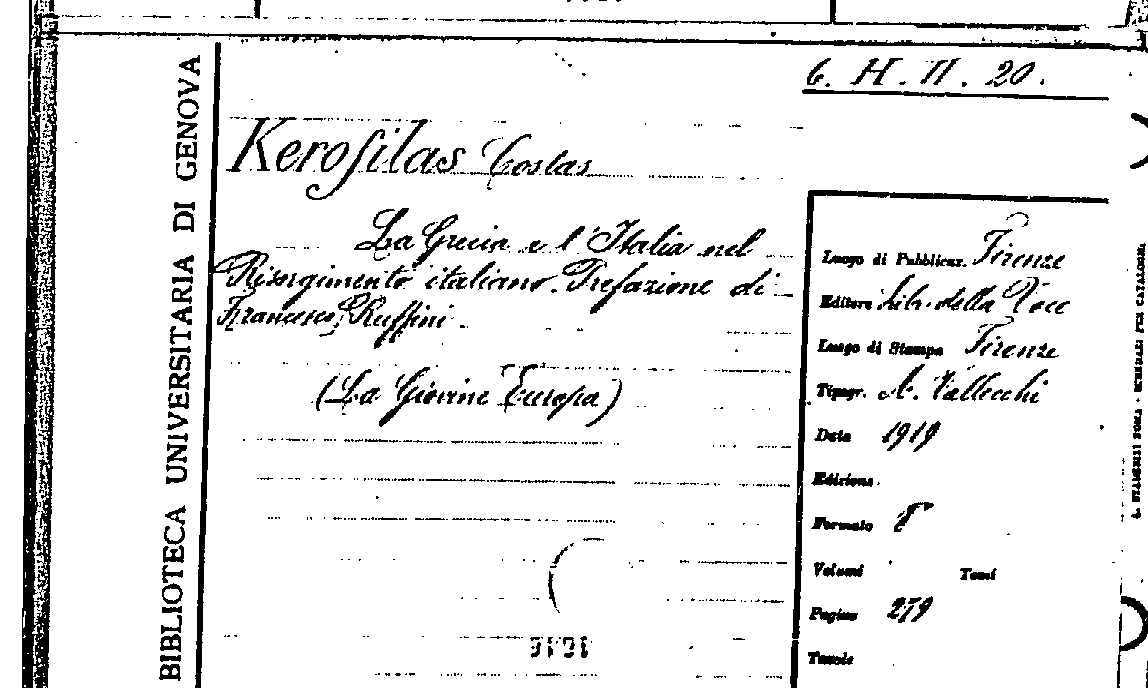 BIBLIOTECA UNIVERSITARIA DI GENOVA
6. H. II. 20.
Kerofilas Costas
La Grecia e l'Italia nel
Risorgimento italiano. Prefazione di
Francesco Ruffini.
(La Giovine Europa)
Luogo di Pubblicaz. Firenze
Editore Libr. della Voce
Luogo di Stampa Firenze
Tipogr. A. Vallecchi
Data 1919
Edizione
Formato 8°
Volumi Tomi
Pagine 279
Tavole